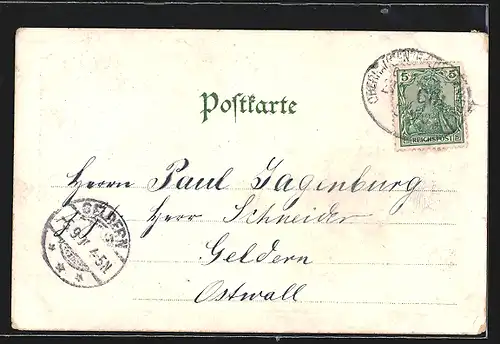 Postkarte
5 5
REICHSPOST
Herrn Paul Jagenburg
Herr Schneider
Geldern
Ostwall
GELDERN
4-5N